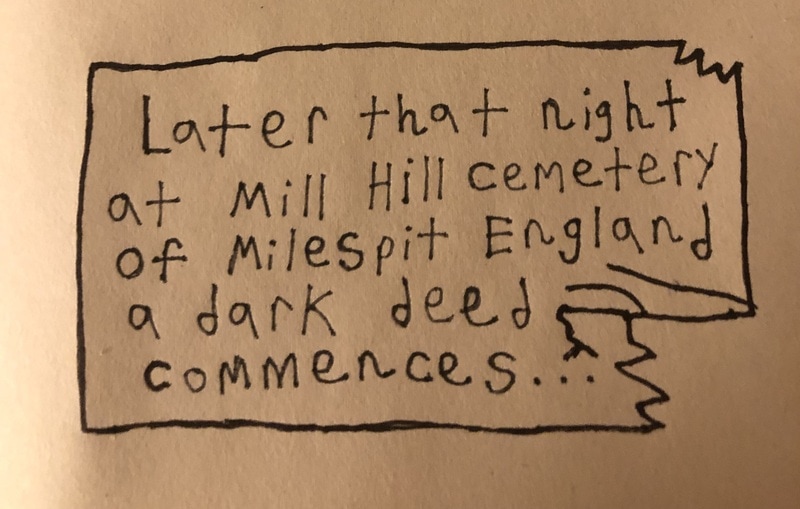 Later that night
at Mill Hill cemetery
of Milespit England
a dark deed
commences...